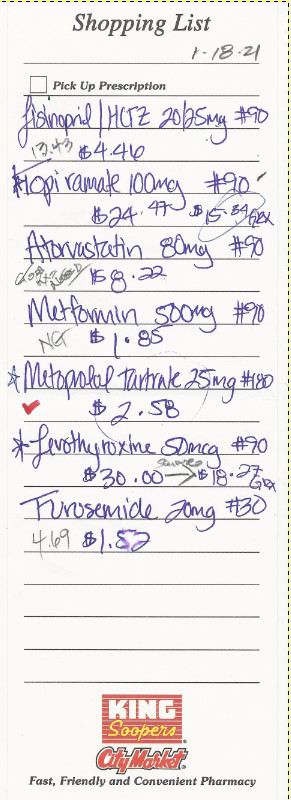 Shopping List
1-18-21
Pick Up Prescription
Lisinopril | HCTZ 20/25mg #90
13.43 $4.46
*Topiramate 100mg #90
$24.47 $15.34 GRx
Atorvastatin 80mg #90
$8.22
Metformin 500mg #90
$1.85
*Metoprolol Tartrate 25mg #180
$2.58
*Levothyroxine 50mcg #90
$30.00 → $18.27
GRx
Furosemide 20mg #30
4.69 $1.52
KING
Soopers
City Market
Fast, Friendly and Convenient Pharmacy